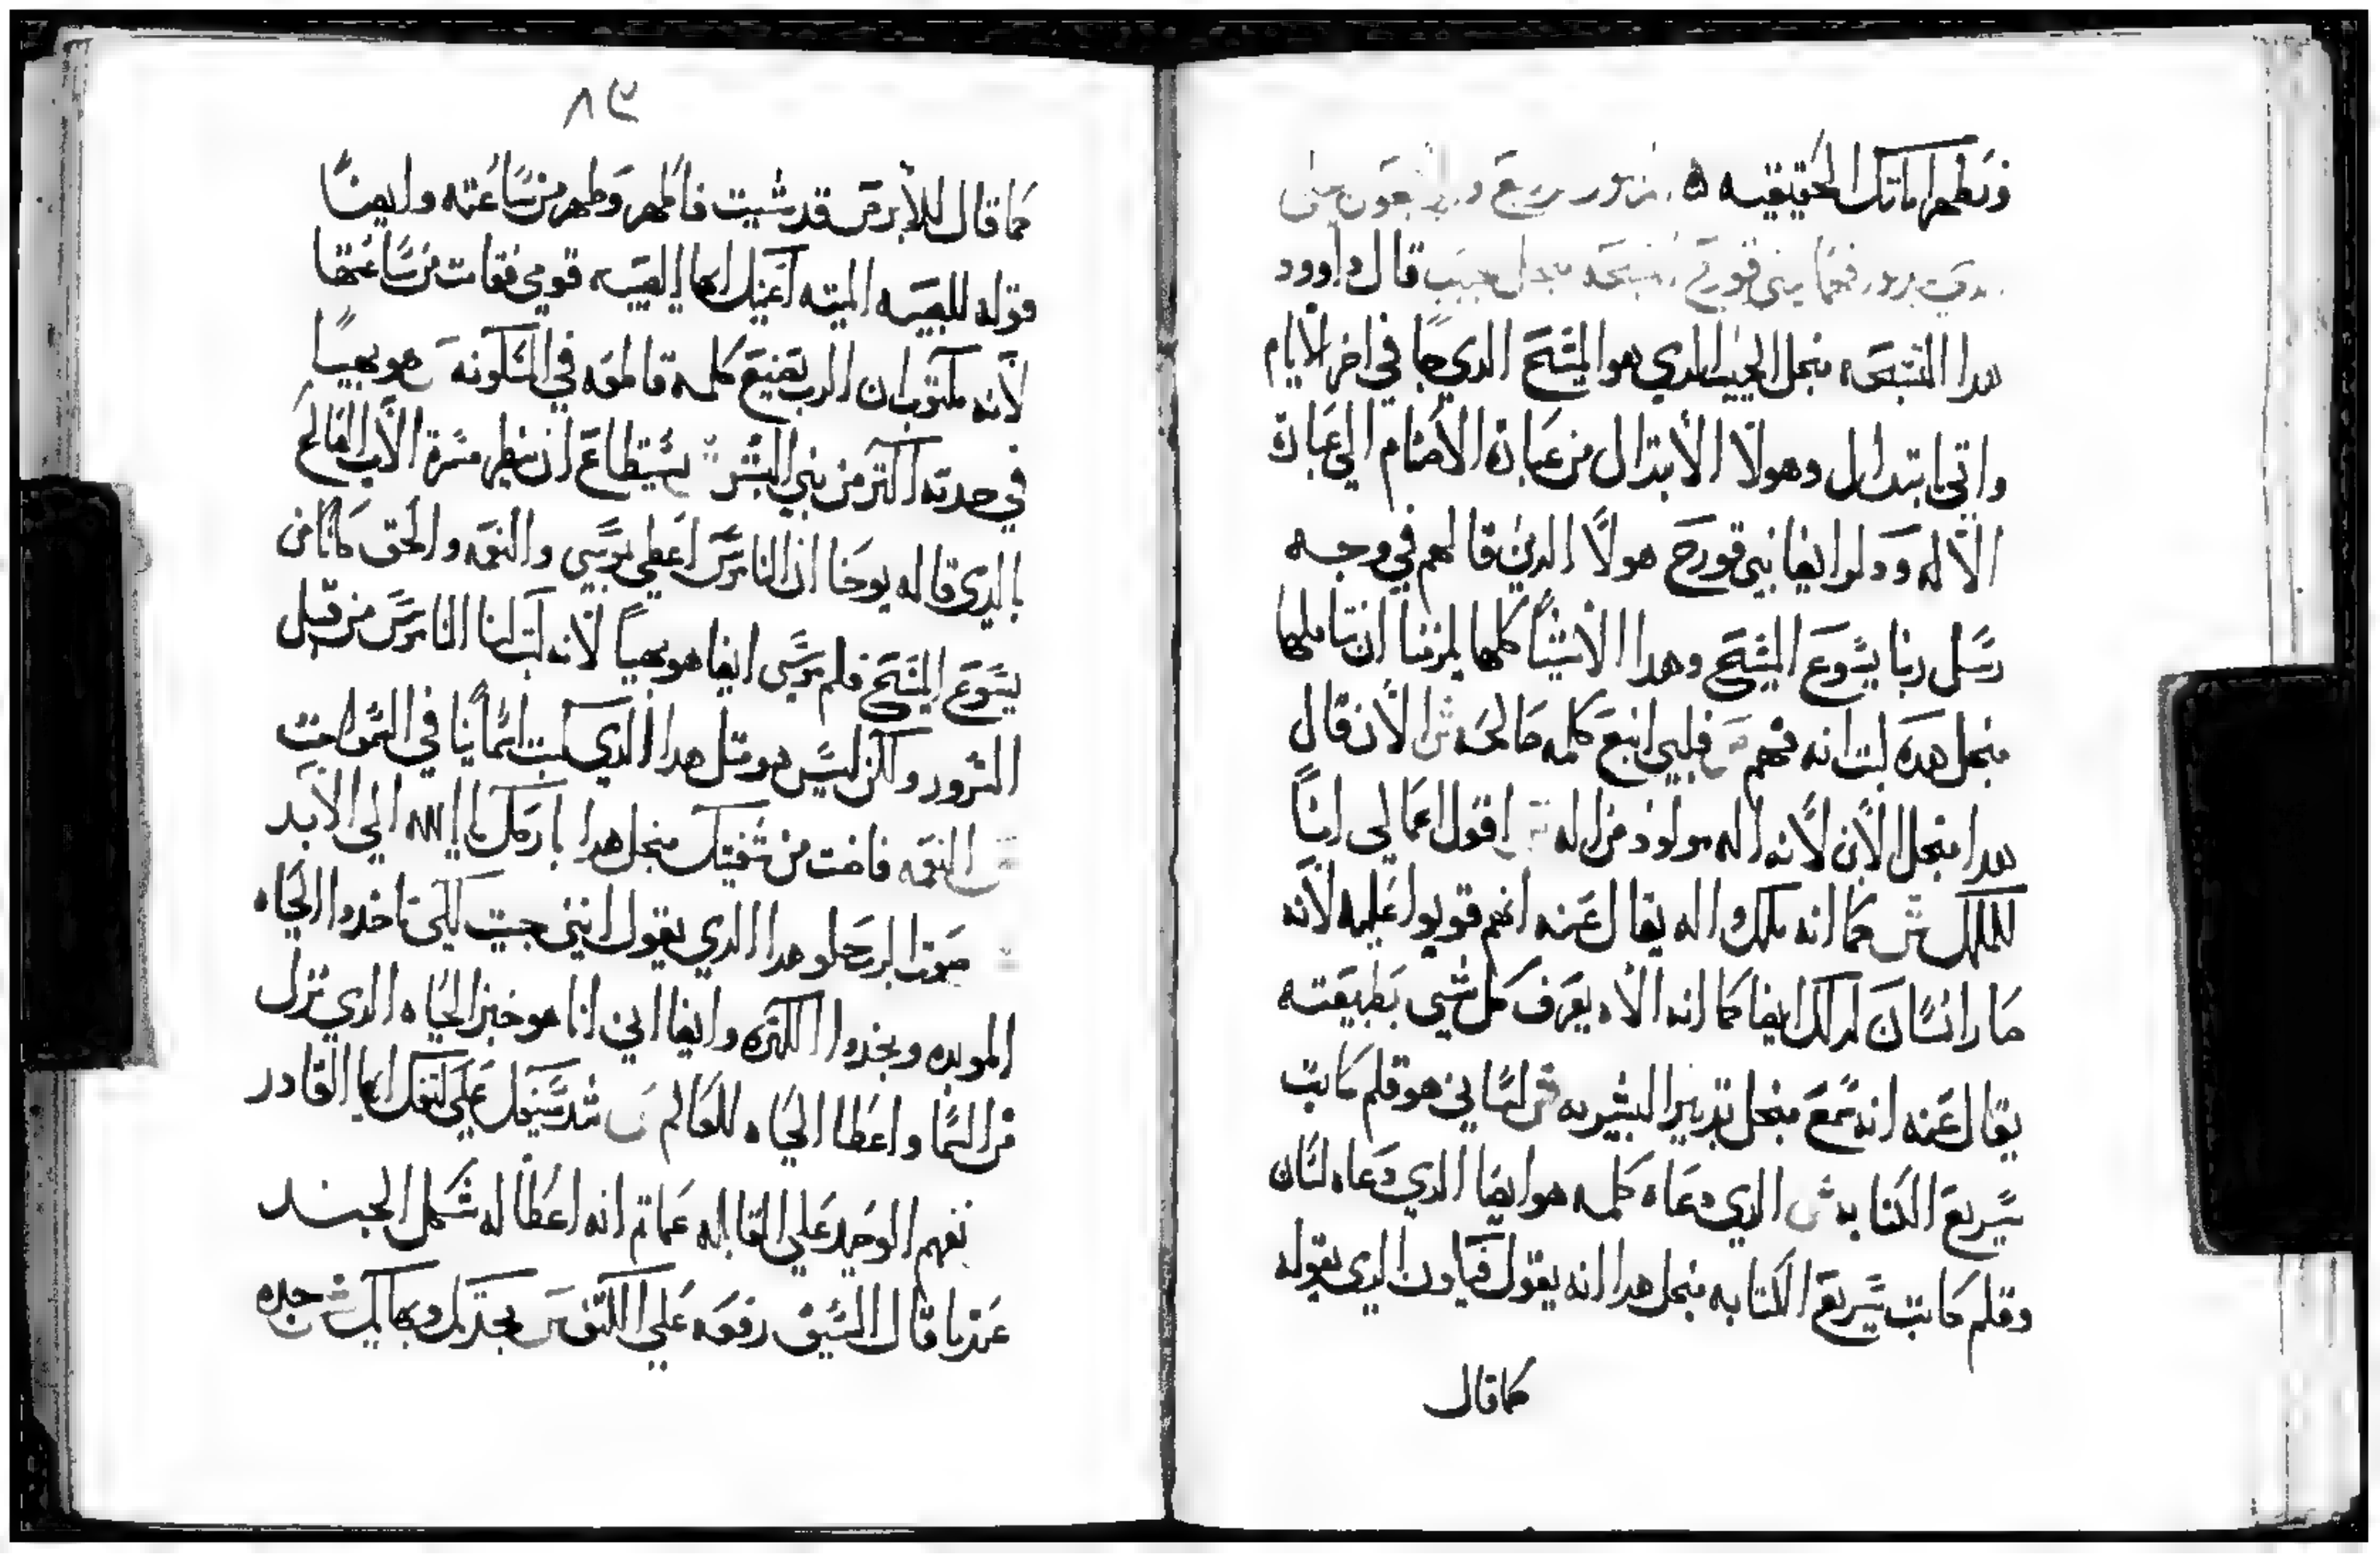 ونطهر اماتك الحقيقيه ۞
قال داوود
هدا التسبحه منجل الحبيب الدي هو المسَيح الدي جا في اخر الايام
واتي بابتدال وهولا الابتدال من عبادة الاصنام الي عبادة
الاله وولوا ايضا بني قورح هولا الدين قالهم في وجه
رسَل ربنا يسَوع المسَيح وهدا الاشيا كلها يلزمنا ان نتاملها
منجل هده لبت انه فهم قلبي انبع كلمه صالحه ش الان قال
هدا منجل الابن لانه اله مولود من اله اقول اعمالي انا
للملك ش كما انه ملك واله يقال عنه انهم قوبوا عليه لانه
صار انسَان لدلك ايضا كما انه الاه يعرف كل شي بطبيعته
يقال عنه انه سمع منجل تدبير البشريه لسَاني هو قلم كاتب
سَريع الكتابه ش الدي دعاه كلمه هو ايضا الدي دعاه لسَان
وقلم كاتب سَريع الكتابه منجل هدا انه يقول فيكون الدي يقوله
كما قال
٨٣
كما قال للابرص قد شيت فاطهر وطهر من سَاعته وايضاً
قوله للصبيه الميته اعني لك ايها الصبيه قومي فقامت من سَاعتها
لانه مكتوب ان الرب يصنع كلمه قاطعه في المسَكونه هو بهياً
في حدته اكتر من بني البشر يسَتطاع ان ينظر مسَرة الاب الصالح
بالدي قاله يوحنا ان الناموسَ اعطي بموسَي والنعمه والحق كانا من
يسَوع المسَيح فلم موسَي ايضا هو بهياً لانه لبت لنا الناموسَ من قبل
السَرور ولكن ليسَ هو متل هدا الدي كتب اسَمائنا في السَموات
النعمه فاضت من شفتيك منجل هدا باركك الله الي الابد
صوت الرب حلو هدا الدي يقول انني جيت لكي تاخدوا الحياه
الموبده وتجدوا الكتره وايضا اني انا هو خبز الحياه الدي نزل
من السَما واعطا الحياه للعالم شد سَيفك علي فخدك ايها القادر
نفهم الوحيد علي القابله عما تم انه اعطا له شكل الجسد
عندما قال السَيف رفعه علي الكتف بمجدك وبهايك جده